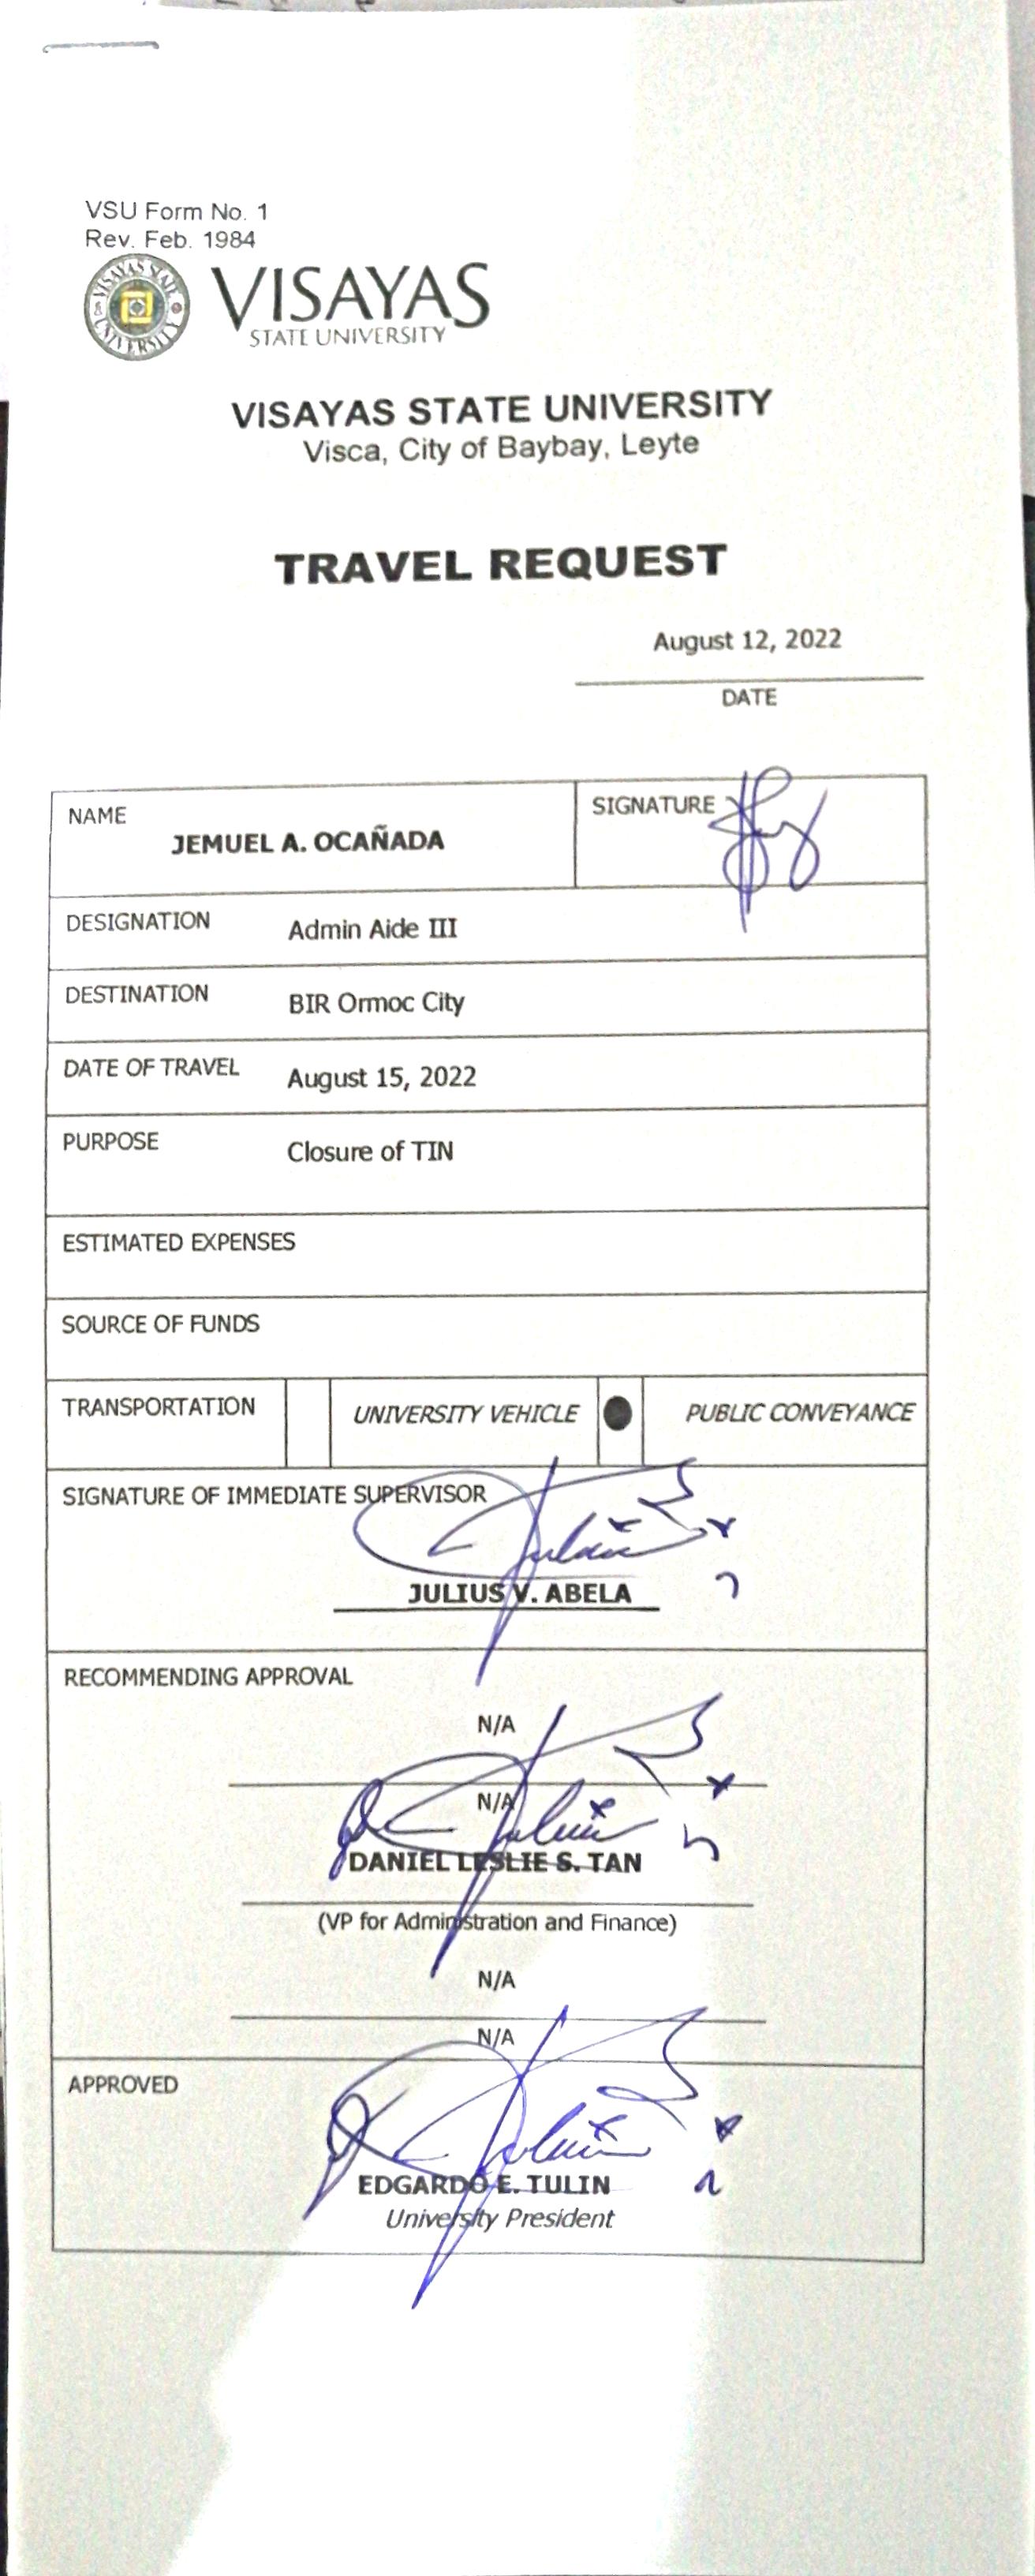 VSU Form No. 1
Rev. Feb. 1984
VISAYAS STATE UNIVERSITY
VISAYAS
STATE UNIVERSITY
VISAYAS STATE UNIVERSITY
Visca, City of Baybay, Leyte
TRAVEL REQUEST
August 12, 2022
DATE
NAME
JEMUEL A. OCAÑADA
SIGNATURE
DESIGNATION Admin Aide III
DESTINATION BIR Ormoc City
DATE OF TRAVEL August 15, 2022
PURPOSE Closure of TIN
ESTIMATED EXPENSES
SOURCE OF FUNDS
TRANSPORTATION UNIVERSITY VEHICLE PUBLIC CONVEYANCE
SIGNATURE OF IMMEDIATE SUPERVISOR
JULIUS V. ABELA
RECOMMENDING APPROVAL
N/A
N/A
DANIEL LESLIE S. TAN
(VP for Administration and Finance)
N/A
N/A
APPROVED
EDGARDO E. TULIN
University President